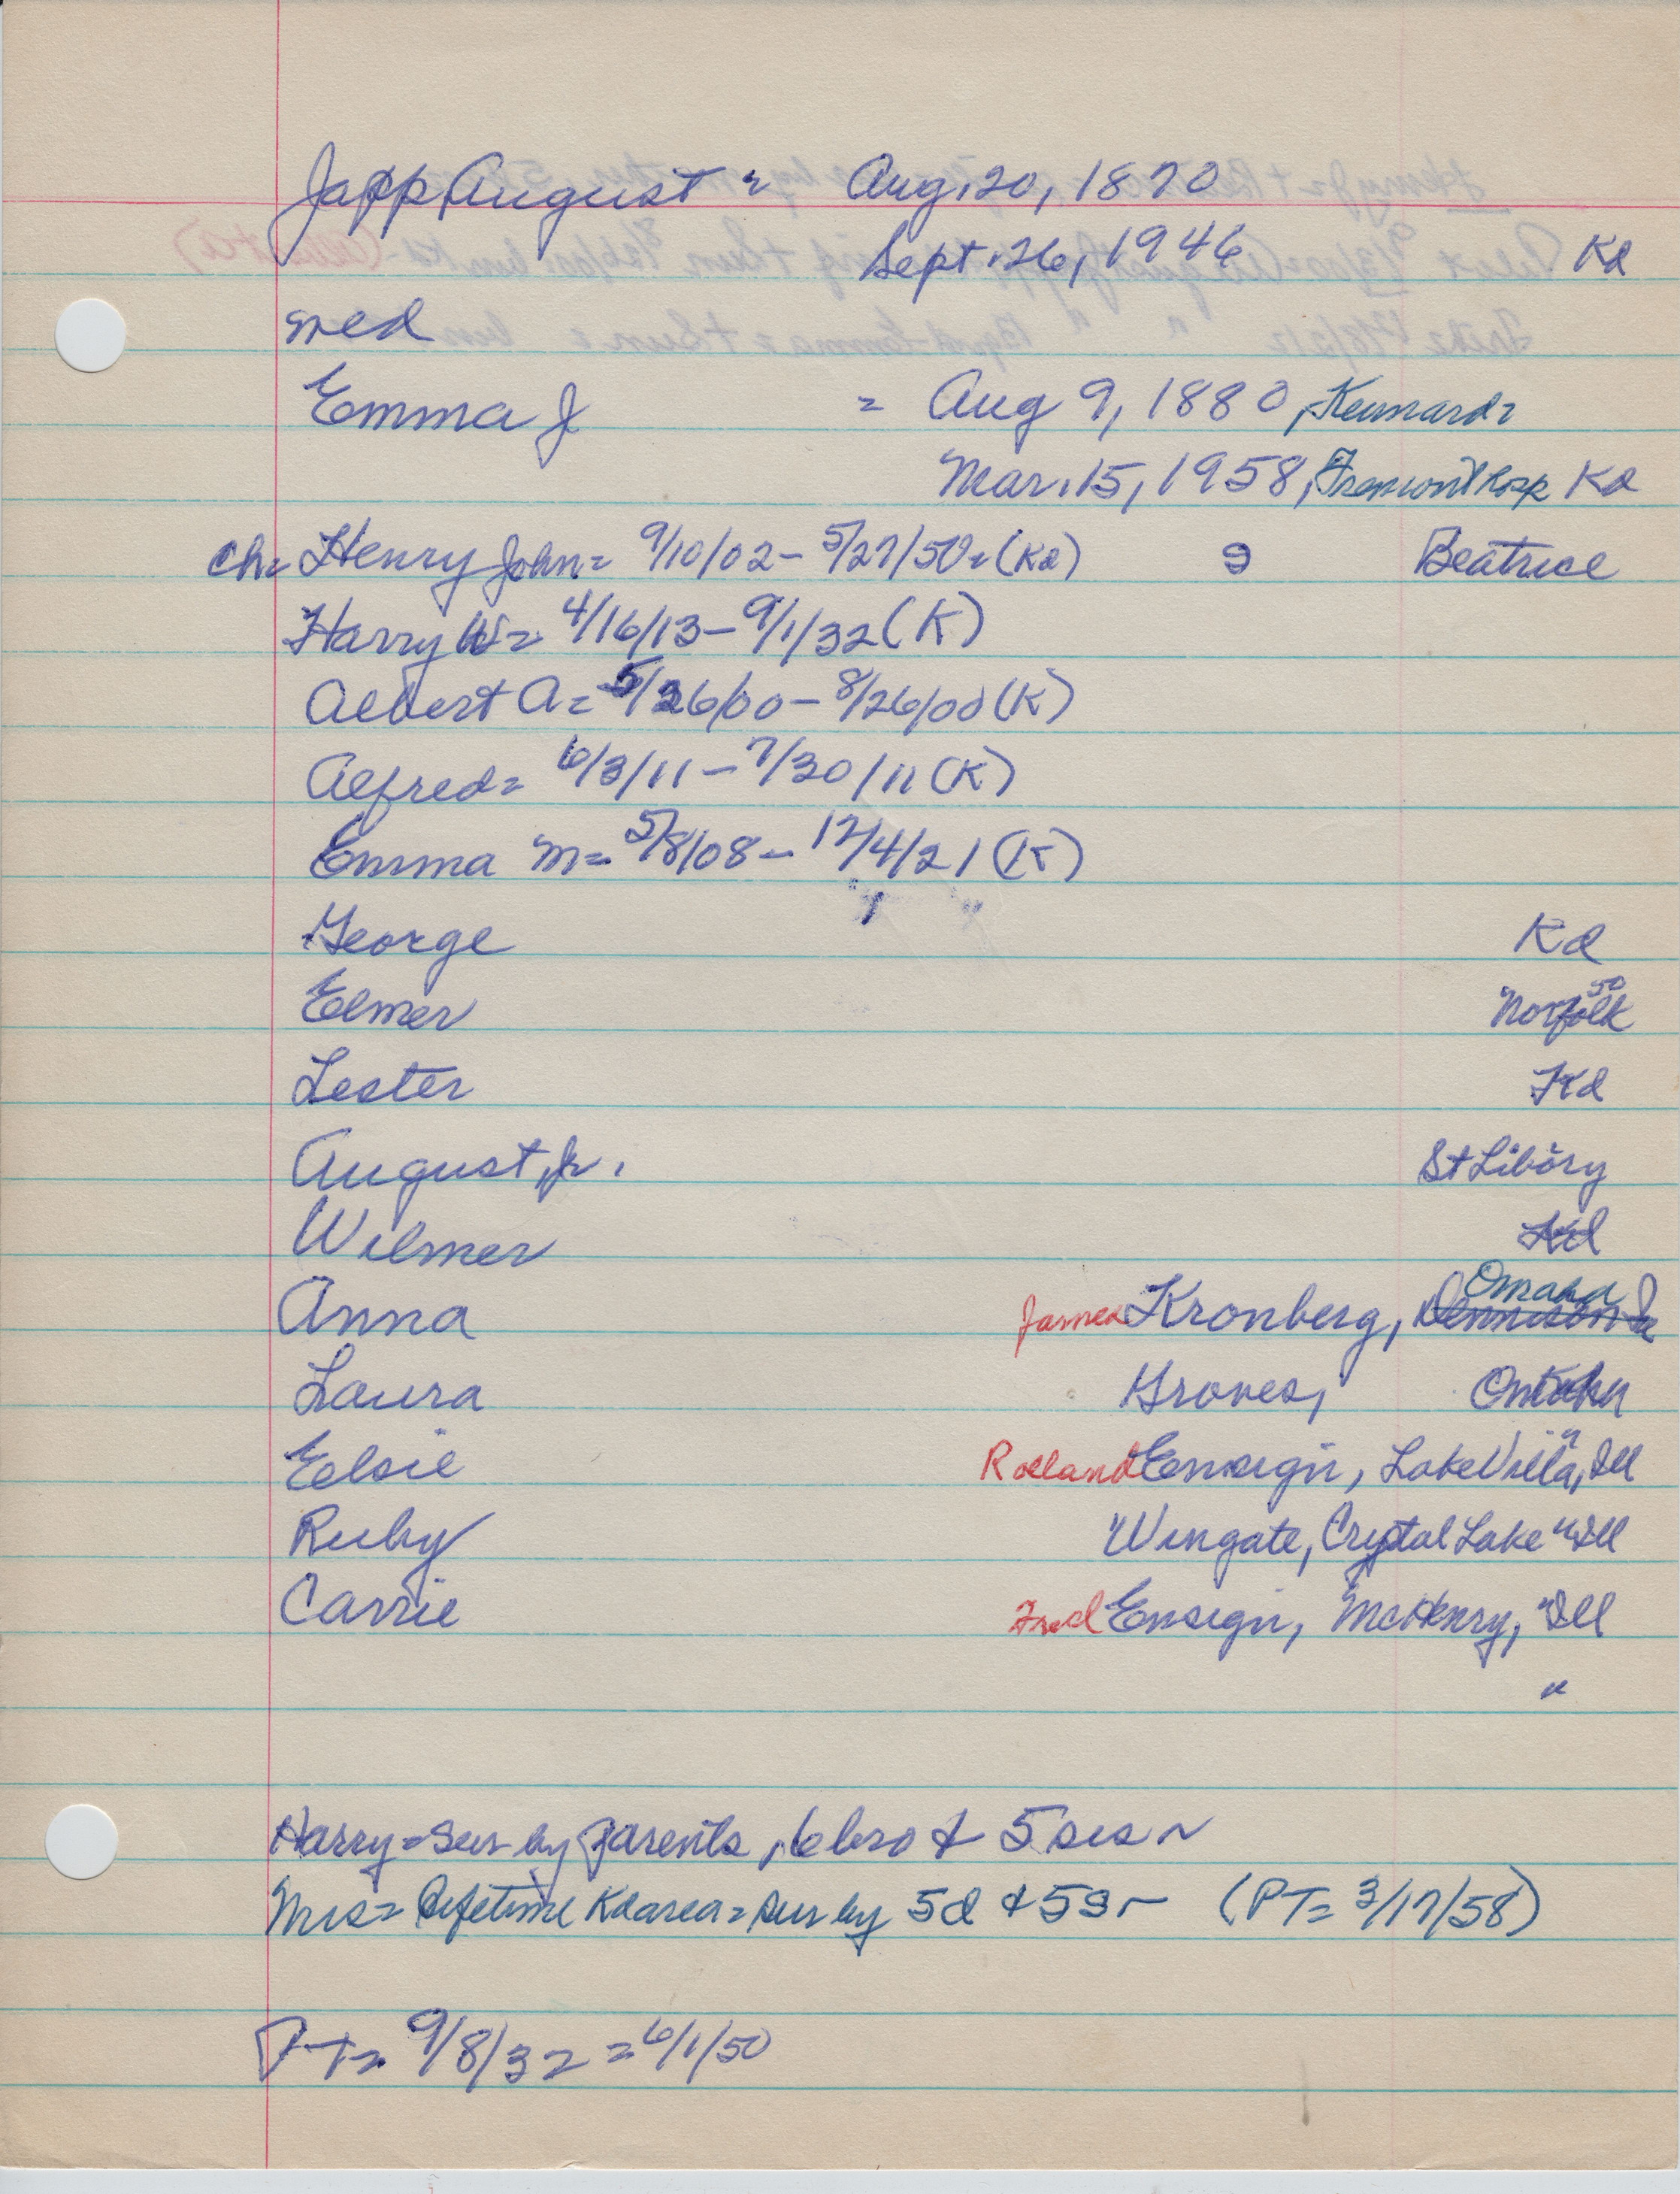 Japp, August = Aug. 20, 1870
Sept. 26, 1946 Kd
med
Emma J = Aug 9, 1880, Kennard=
Mar. 15, 1958, Fremont Hosp Kd
Ch= Henry John= 9/10/02 - 5/27/50= (Kd) Beatrice
Harry W= 4/16/13 - 9/1/32 (K)
Albert A= 5/26/00 - 8/26/00 (K)
Alfred= 6/3/11 - 7/30/11 (K)
Emma M= 5/8/08 - 12/4/21 (K)
" "
George Kd
50
Elmer Norfolk
Lester Kd
August, Jr. St Libory
Wilmer Kd
Omaha
Anna James Kronberg, Dennison Ia
Laura Groves, Omaha
Elsie Rolland Ensign, Lake Villa, " Ill
Ruby "Wingate, Crystal Lake " Ill
Carrie Fred Ensign, McHenry, " Ill
"
Harry= sur by parents, 6 bro & 5 sis ~
Mrs= Lifetime Kd area= sur by 5d & 5s ~ (PT= 3/17/58)
PT= 9/8/32 = 6/1/50